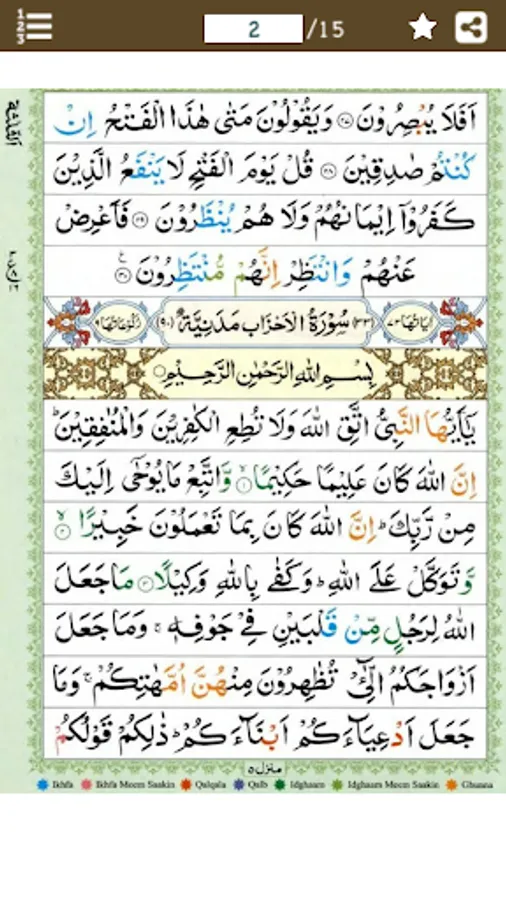 2 /15
اَفَلَا يُبْصِرُوْنَ ۝۲۷ وَيَقُوْلُوْنَ مَتٰى هٰذَا الْفَتْحُ اِنْ
كُنْتُمْ صٰدِقِيْنَ ۝۲۸ قُلْ يَوْمَ الْفَتْحِ لَا يَنْفَعُ الَّذِيْنَ
كَفَرُوْۤا اِيْمَانُهُمْ وَلَا هُمْ يُنْظَرُوْنَ ۝۲۹ فَاَعْرِضْ
عَنْهُمْ وَانْتَظِرْ اِنَّهُمْ مُّنْتَظِرُوْنَ ۝۳۰
اٰيَاتُهَا ۷۳ (۳۳) سُوْرَةُ الْاَحْزَابِ مَدَنِيَّةٌ (۹۰) رُكُوْعَاتُهَا ۹
بِسْمِ اللّٰهِ الرَّحْمٰنِ الرَّحِيْمِ
يٰۤاَيُّهَا النَّبِىُّ اتَّقِ اللّٰهَ وَلَا تُطِعِ الْكٰفِرِيْنَ وَالْمُنٰفِقِيْنَ ؕ
اِنَّ اللّٰهَ كَانَ عَلِيْمًا حَكِيْمًا ۝۱ وَّاتَّبِعْ مَا يُوْحٰۤى اِلَيْكَ
مِنْ رَّبِّكَ ؕ اِنَّ اللّٰهَ كَانَ بِمَا تَعْمَلُوْنَ خَبِيْرًا ۝۲
وَّتَوَكَّلْ عَلَى اللّٰهِ ؕ وَكَفٰى بِاللّٰهِ وَكِيْلًا ۝۳ مَا جَعَلَ
اللّٰهُ لِرَجُلٍ مِّنْ قَلْبَيْنِ فِيْ جَوْفِهٖ ۚ وَمَا جَعَلَ
اَزْوَاجَكُمُ الّٰٓـِٔىْ تُظٰهِرُوْنَ مِنْهُنَّ اُمَّهٰتِكُمْ ۚ وَمَا
جَعَلَ اَدْعِيَآءَكُمْ اَبْنَآءَكُمْ ؕ ذٰلِكُمْ قَوْلُكُمْ
منزل ۵
Ikhfa Ikhfa Meem Saakin Qalqala Qalb Idghaam Idghaam Meem Saakin Ghunna